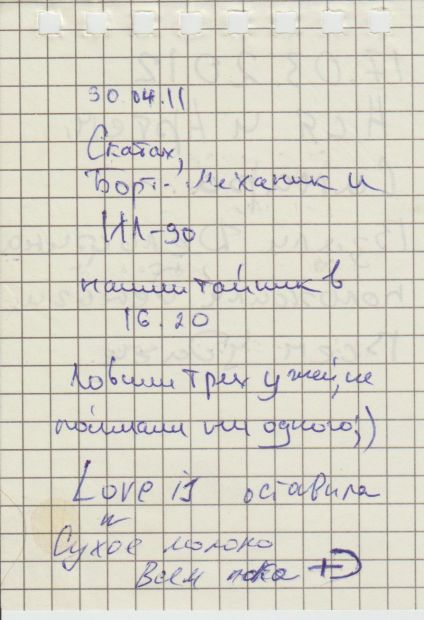 30.04.11
Скатах,
Борт-Механик и
ИЛ-90
нашли тайник в
16.20
Ловили трех ужей, не
поймали ни одного ;)
Love is оставила
и
Сухое молоко
Всем пока